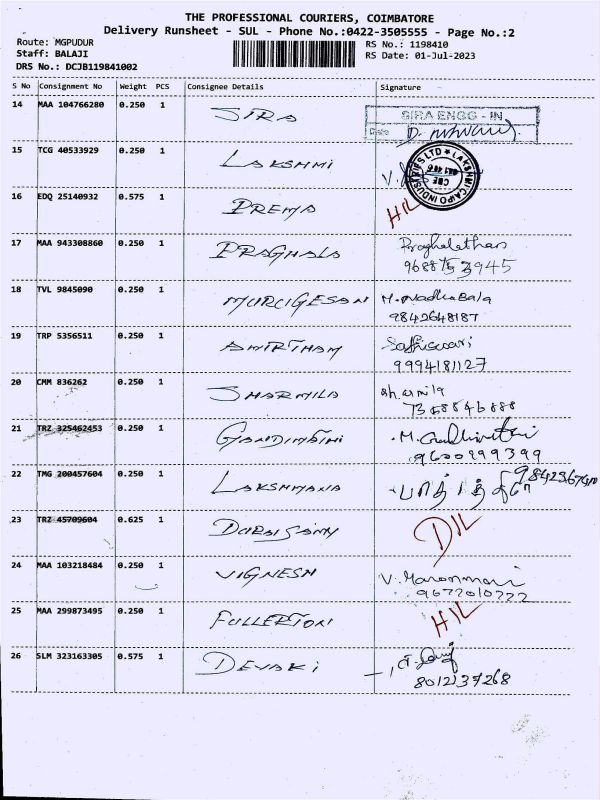 THE PROFESSIONAL COURIERS, COIMBATORE
Delivery Runsheet - SUL - Phone No.:0422-3505555 - Page No.:2
Route: MGPUDUR
RS No.: 1198410
Staff: BALAJI
RS Date: 01-Jul-2023
DRS No.: DCJB119841002
S No Consignment No Weight PCS Consignee Details Signature
14 MAA 104766280 0.250 1 SIRA SIRA ENGG - IN
Date
15 TCG 40533929 0.250 1 LAKSHMI V.
LAKSHMI CAIPO INDUSTRIES LTD ★
CBE
16 EDQ 25140932 0.575 1 PREMA HIL
17 MAA 943308860 0.250 1 PRAGHALA Praghalathan
9688753945
18 TVL 9845090 0.250 1 MURUGESAN M. Madhubala
9842648187
19 TRP 5356511 0.250 1 AMIRTHAM
9994181127
20 CMM 836262 0.250 1 SHARMILA sharmila
7358846888
21 TRZ 325462453 0.250 1 GANDIMATHI M.
9600999399
22 TMG 200457604 0.250 1 LAKSHMANA
23 TRZ 45709604 0.625 1 DURAISAMY DIL
24 MAA 103218484 0.250 1 VIGNESH V.
9677010777
25 MAA 299873495 0.250 1 FULLERTON HIL
26 SLM 323163305 0.575 1 DEVAKI
8012137268